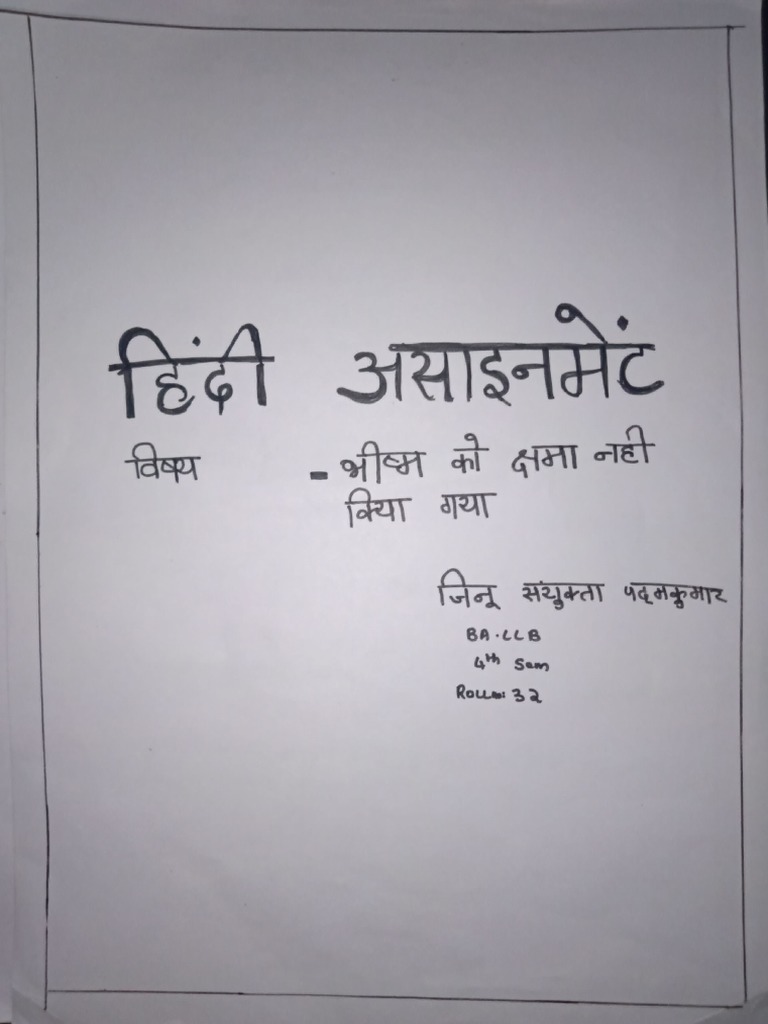 हिंदी असाइनमेंट
विषय - भीष्म को क्षमा नही
किया गया
जिनू संयुक्ता पद्मकुमार
BA.LLB
4th Sem
Roll no: 32